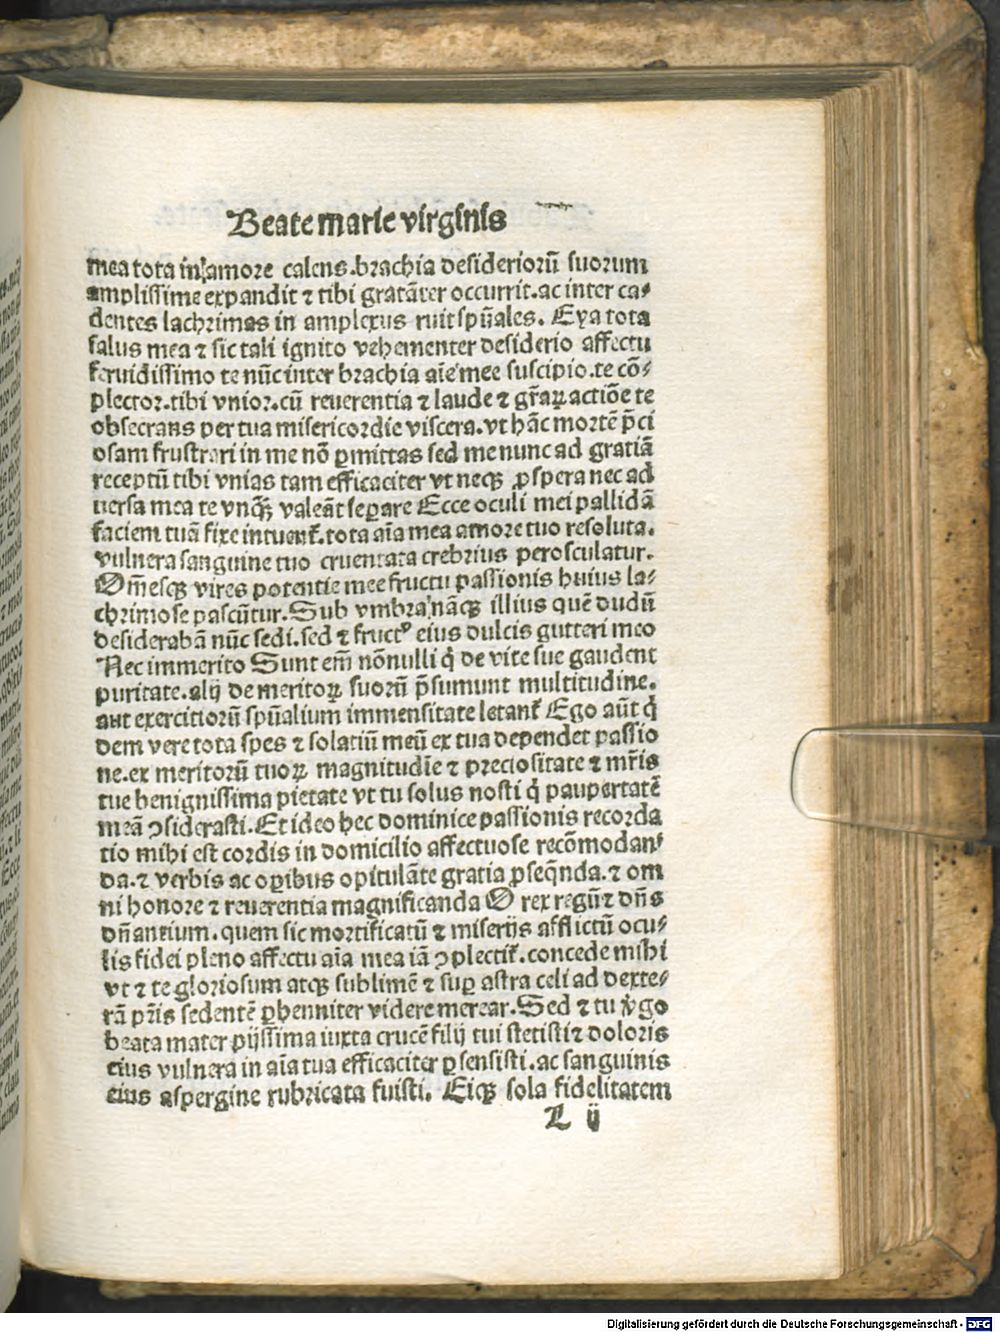 Beate marie virginis
mea tota in amore calens.brachia desideriorū suorum
amplissime expandit ⁊ tibi gratāter occurrit.ac inter ca⸗
dentes lachrimas in amplexus ruit spūales. Eya tota
salus mea ⁊ sic tali ignito vehementer desiderio affectu
feruidissimo te nūc inter brachia aīe mee suscipio.te cō⸗
plector.tibi vnior.cū reuerentia ⁊ laude ⁊ gr̄aꝝ actiōe te
obsecrans per tua misericordie viscera.vt hāc mortē p̄ci
osam frustrari in me nō ꝑmittas sed me nunc ad gratiā
receptū tibi vnias tam efficaciter vt neqꝫ ꝓspera nec ad
uersa mea te vnqꝫ̄ valeāt seꝑare Ecce oculi mei pallidā
faciem tuā fixe intuent̄. tota aīa mea amore tuo resoluta.
vulnera sanguine tuo cruentata crebrius perosculatur.
Om̄esqꝫ vires potentie mee fructu passionis huius la⸗
chrimose pascūtur. Sub vmbra nāqꝫ illius quē dudū
desiderabā nūc sedi.sed ⁊ fructꝰ eius dulcis gutteri meo
Nec immerito Sunt em̄ nōnulli q̄ de vite sue gaudent
puritate.alij de meritoꝝ suorū p̄sumunt multitudine.
aut exercitiorū spūalium immensitate letant̄ Ego aūt q̄
dem vere tota spes ⁊ solatiū meū ex tua dependet passio
ne.ex meritorū tuoꝝ magnitudīe ⁊ preciositate ⁊ mr̄is
tue benignissima pietate vt tu solus nosti q̄ paupertatē
meā ꝯsiderasti. Et ideo hec dominice passionis recorda
tio mihi est cordis in domicilio affectuose recōmodan⸗
da.⁊ verbis ac oꝑibus opitulāte gratia ꝓseq̄nda.⁊ om
ni honore ⁊ reuerentia magnificanda O rex regū ⁊ dn̄s
dn̄antium.quem sic mortificatū ⁊ miserijs afflictū ocu⸗
lis fidei pleno affectu aīa mea iā ꝯplectit̄.concede mihi
vt ⁊ te gloriosum atqꝫ sublimē ⁊ suꝑ astra celi ad dexte⸗
rā pr̄is sedentē ꝑhenniter videre merear. Sed ⁊ tu v̄go
beata mater pijssima iuxta crucē filij tui stetisti ⁊ doloris
eius vulnera in aīa tua efficaciter ꝑsensisti. ac sanguinis
eius aspergine rubricata fuisti. Eiqꝫ sola fidelitatem
L ij
Digitalisierung gefördert durch die Deutsche Forschungsgemeinschaft - DFG